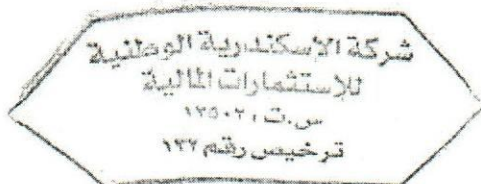 شركة الاسكندرية الوطنية
للإستثمارات المالية
س.ت : ١٣٥٠٢
ترخيص رقم ١٣٢